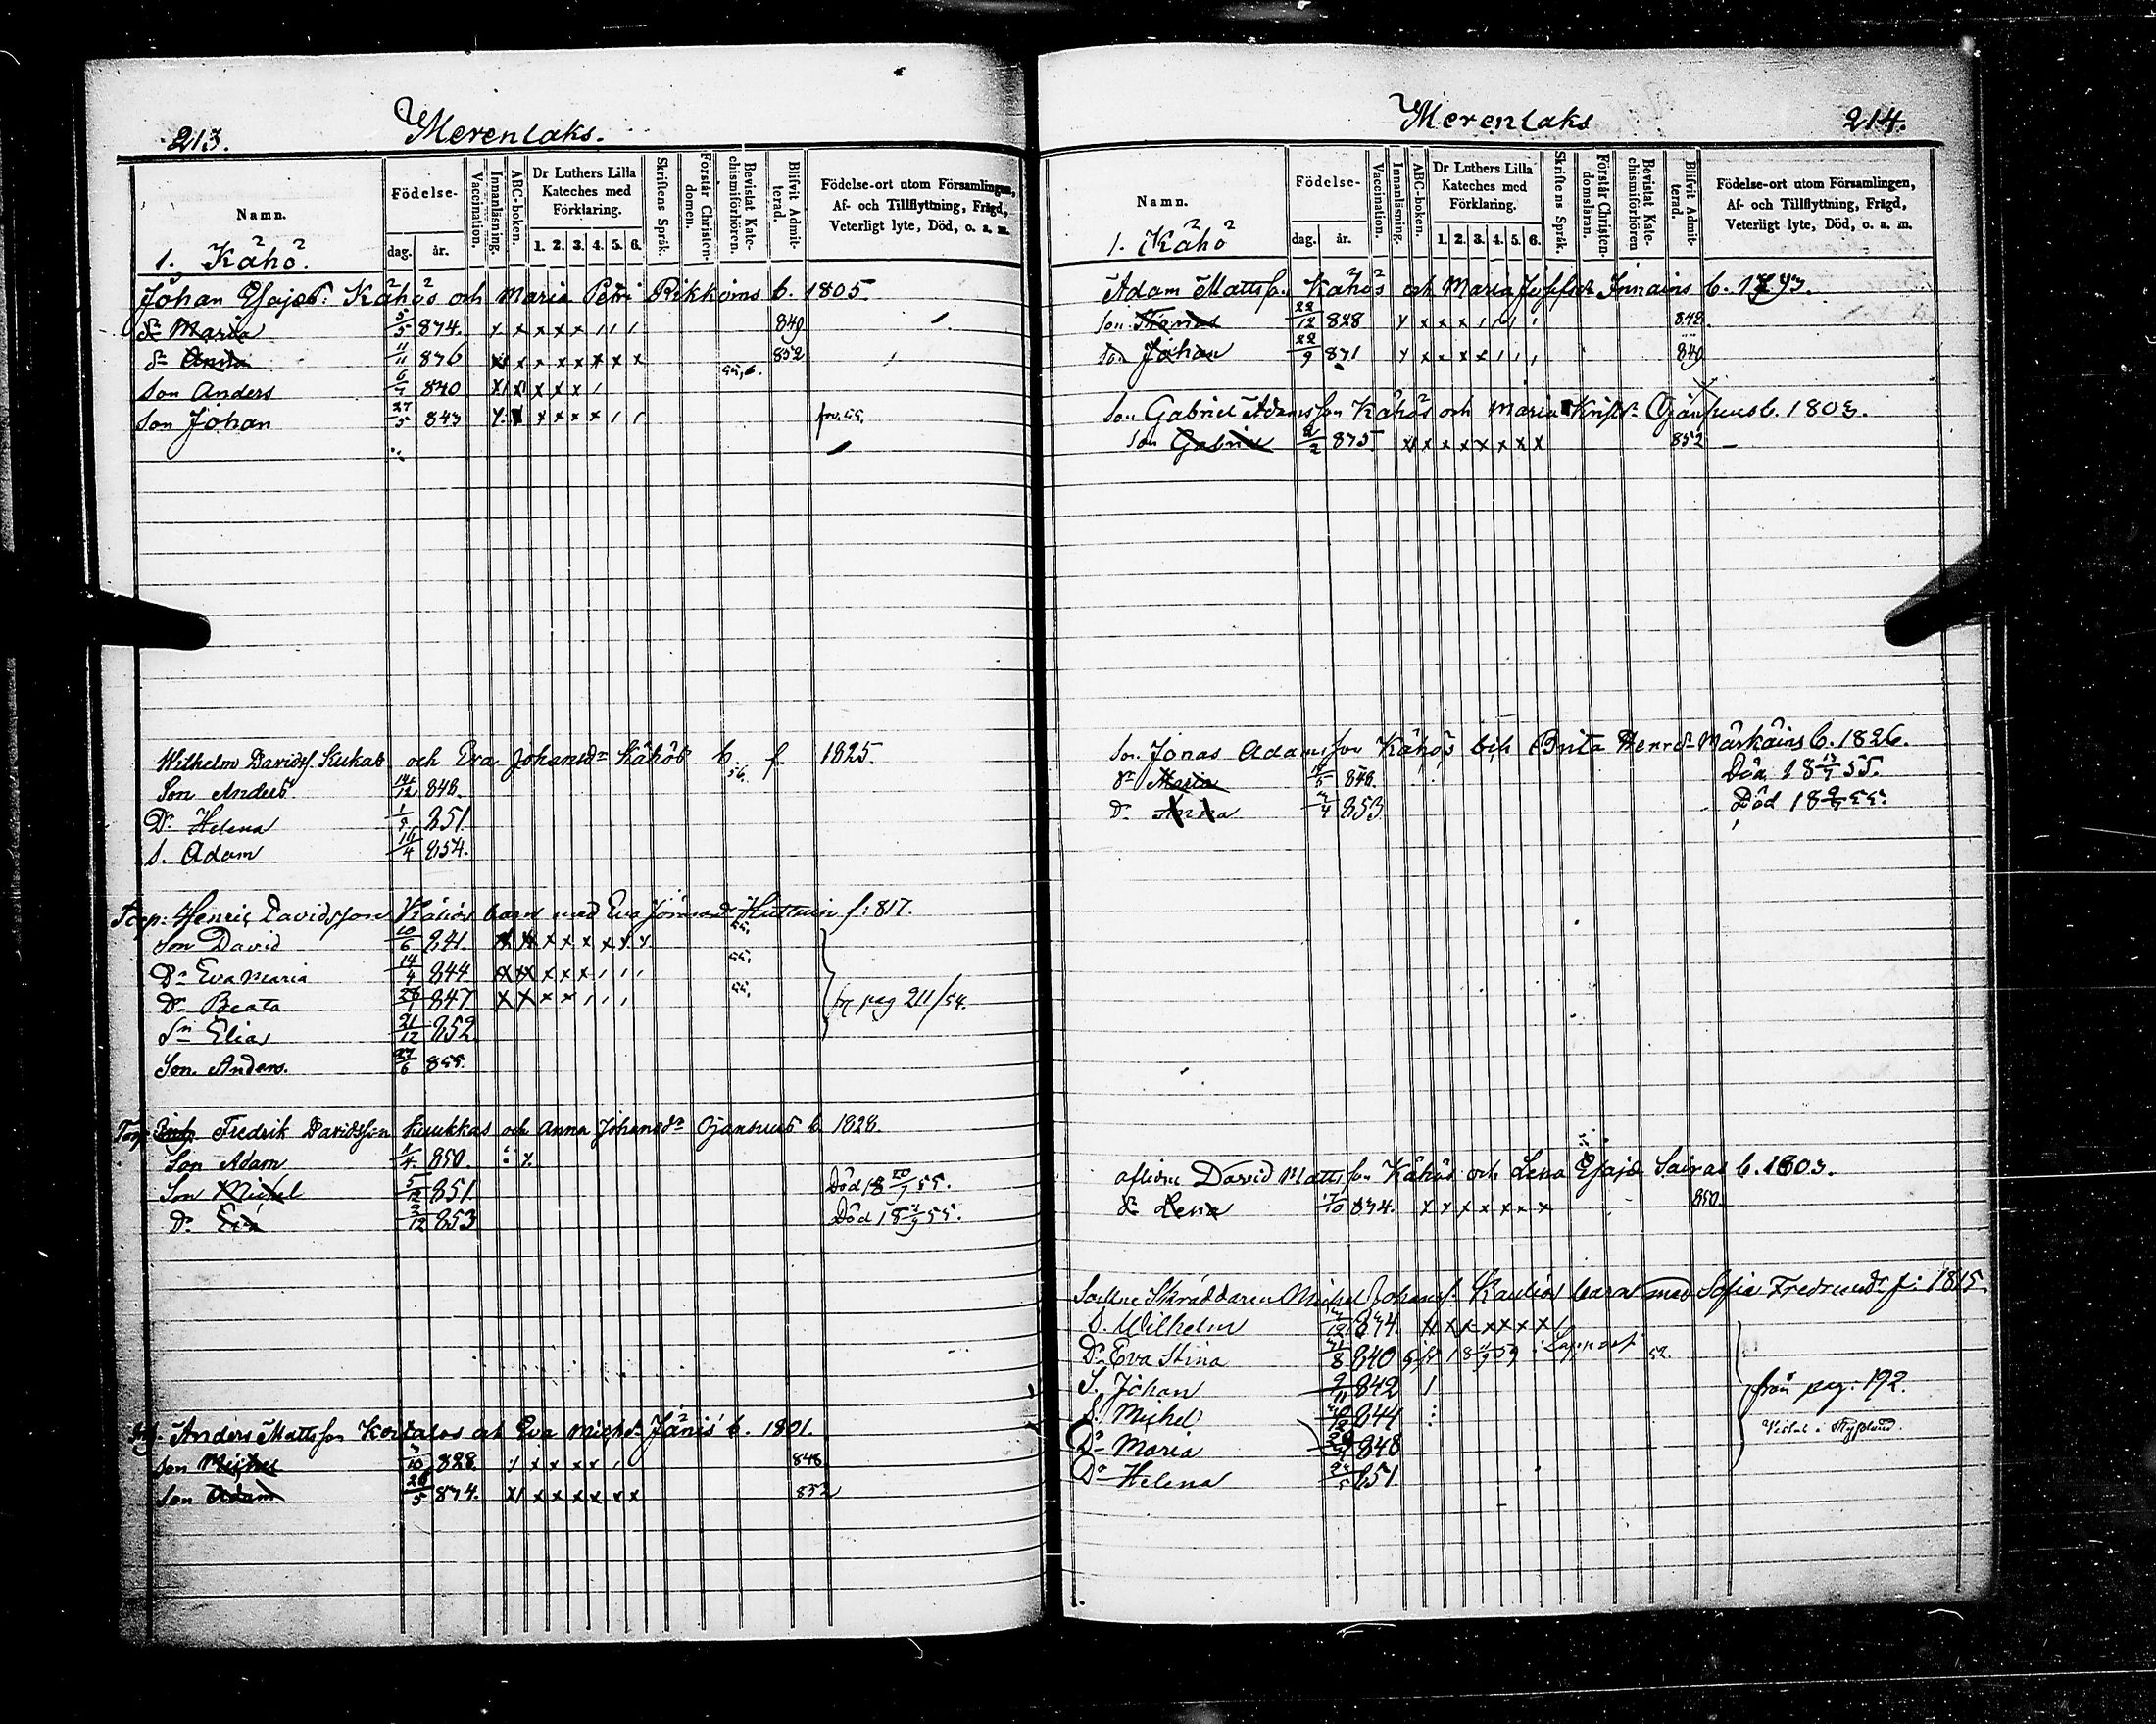 213.
Merenlaks.
Namn.
Födelse-
dag.
år.
Vaccination.
Innanläsning.
ABC-boken.
Dr Luthers Lilla
Kateches med
Förklaring.
1. 2. 3. 4. 5. 6.
Skriftens Språk.
Förstår Christen-
domen.
Bevistat Kate-
chismiförhören.
Blifvit Admit-
terad.
Födelse-ort utom Församlingen,
Af- och Tillflyttning, Frägd,
Veterligt lyte, Död, o. a. m.
1. Kähö.
Johan Esajæs: Kähös och Maria Petri Rikkoins b. 1805.
dr Maria 5/5 834. x x x x x 849
dr Anna 11/11 836 x x x x x x x x 852
Son Anders 6/7 840 x x x x x 55, 6.
Son Johan 27/5 843 x x x x x
Wilhelm Davidss. Kukas och Eva Johansdr Kähös b. f 1825.
Son Anders 12/12 848. 56.
Dr Helena 851
S. Adam 854.
Torp. Henric Davidsson Kähös barn med Eva f: 817.
Son David 10/6 841. x x x x x x x x 55,
Dr Eva Maria 14/4 844 x x x x x 55,
Dr Beata 28/1 847 x x x x 55, fr pag 211/54.
Sn Elias 21/12 852
Son Anders. 27/6 855.
Torp. Fredrik Davidsson Kuukkas och Anna Johansdr Ojansuus b. 1828.
Son Adam 1/4 850.
Son Michel 5/12 851 Död 18 20/7 55.
Dr Eva 2/12 853 Död 18 55.
Anders Mattsson Kortalos och Eva Michsdr Jänis b. 1801.
Son Michel 828. x x x x 848
Son Adam 26/5 834. x x x x x x x 852
Merenlaks
214.
Namn.
Födelse-
dag.
år.
Vaccination.
Innanläsning.
ABC-boken.
Dr Luthers Lilla
Kateches med
Förklaring.
1. 2. 3. 4. 5. 6.
Skriftens Språk.
Förstår Christen-
domsläran.
Bevistat Kate-
chismiförhören
Blifvit Admit-
terad.
Födelse-ort utom Församlingen,
Af- och Tillflyttning, Frägd,
Veterligt lyte, Död, o. a. m.
1. Kähö
Adam Mattss. Kähös och Maria Josefsdr Innains b. 1793.
Son Thomas 22/12 828 x x x x 848.
Son Johan 22/9 831 x x x x x 849
Son Gabriel Adamsson Kähös och Maria Kristr Ojansuus b. 1803.
Son Gabriel 2/2 835. x x x x x x x x 852
Son Jonas Adamsson Kähös och Brita Henrdr Märkäins b. 1826.
dr Maria 848. Död 18 55.
Dr Anna 853 Död 18 55.
aflidne David Mattsson Kähös och Lena Esajæ Sairas b. 1803.
dr Lena 17/10 834. x x x x x x x 850.
Skräddaren Michel Johanss. barn med Sofia f: 1815
S. Wilhelm 834. x x x x x x x
Dr Eva Stina 8 840 52.
S. Johan 2/11 842
S. Michel 844
Dr Maria 848
Dr Helena 851.
från pag: 192.